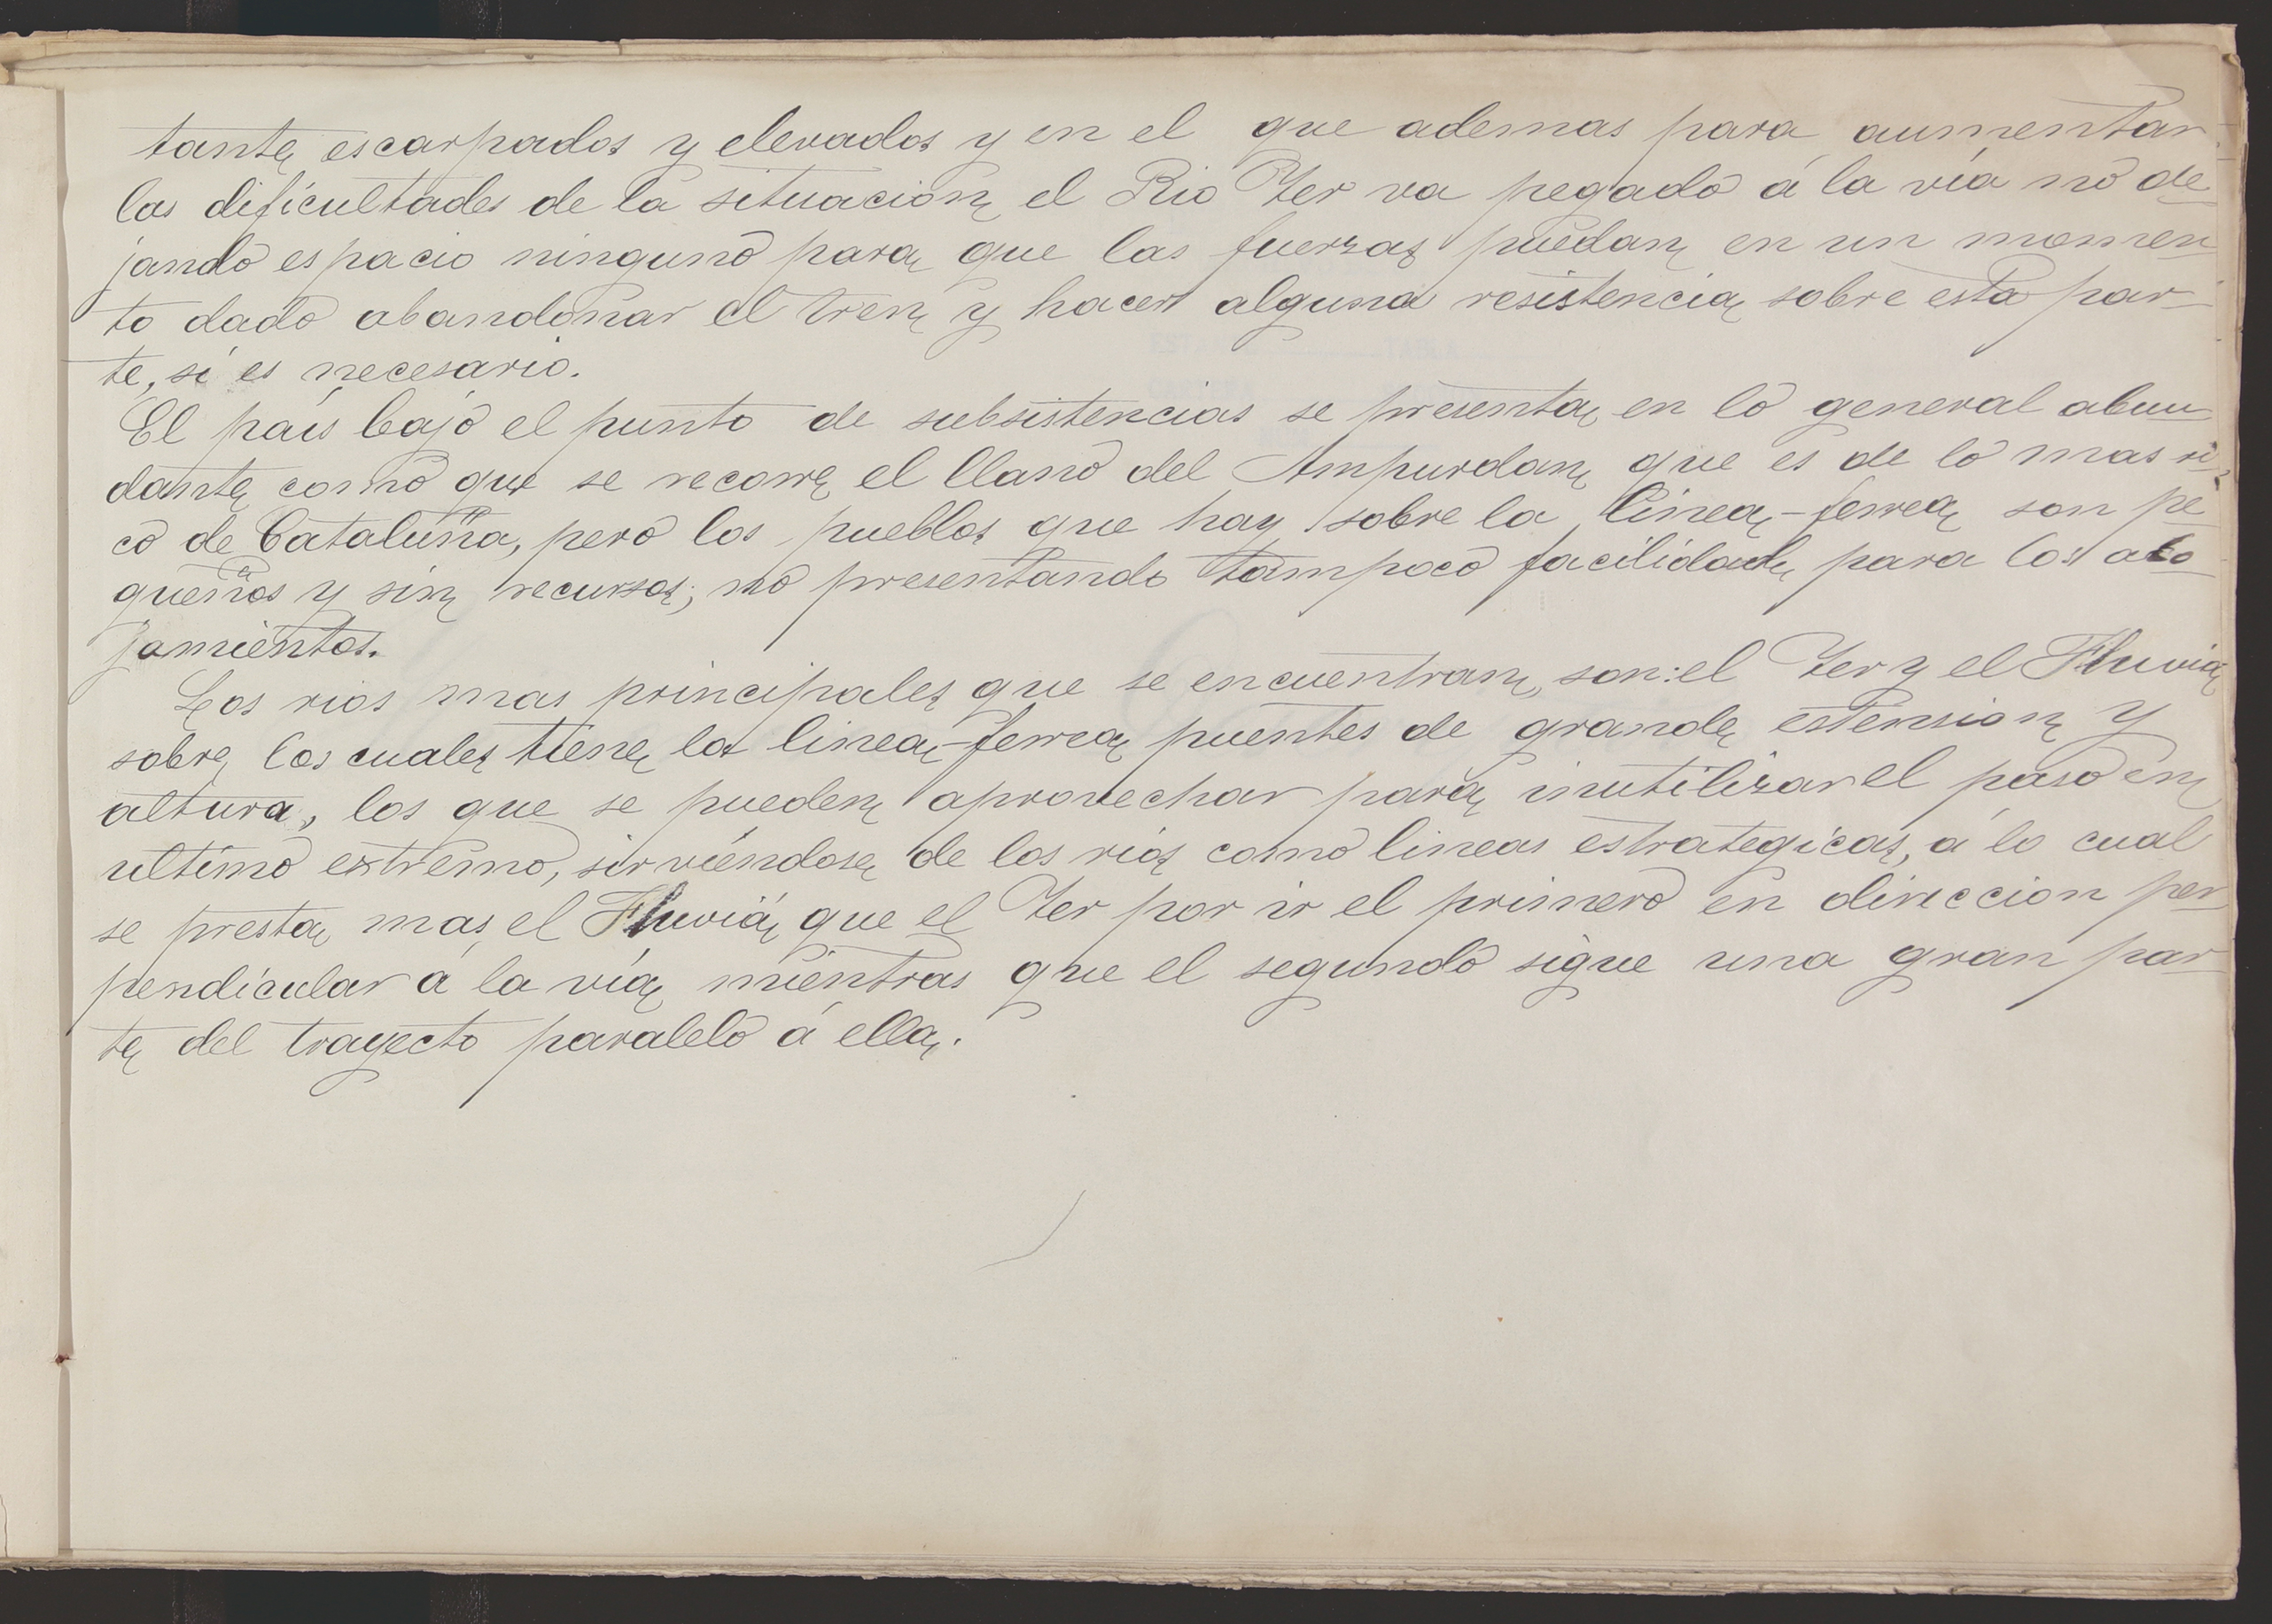 tante escarpados y elevados y en el que ademas para aumentar
las dificultades de la situacion el Rio Ter va pegado á la vía no de-
jando espacio ninguno para que las fuerzas puedan en un momen-
to dado abandonar el tren y hacer alguna resistencia sobre esta par-
te, si es necesario.
El país bajo el punto de subsistencias se presenta en lo general abun-
dante como que se recorre el llano del Ampurdan que es de lo mas ri-
co de Cataluña, pero los pueblos que hay sobre la linea-ferrea son pe-
queños y sin recursos; no presentando tampoco facilidade para los alo-
jamientos.
Los rios mas principales que se encuentran, son: el Ter y el Fluvia
sobre los cuales tiene la linea-ferrea puentes de grande estension y
altura, los que se pueden aprovechar para inutilizar el paso en
ultimo extremo, sirviéndose de los rios como lineas estrategicas, á lo cual
se presta mas el Fluviá que el Ter por ir el primero en direccion per-
pendicular á la vía mientras que el segundo sigue una gran par-
te del trayecto paralelo á ella.